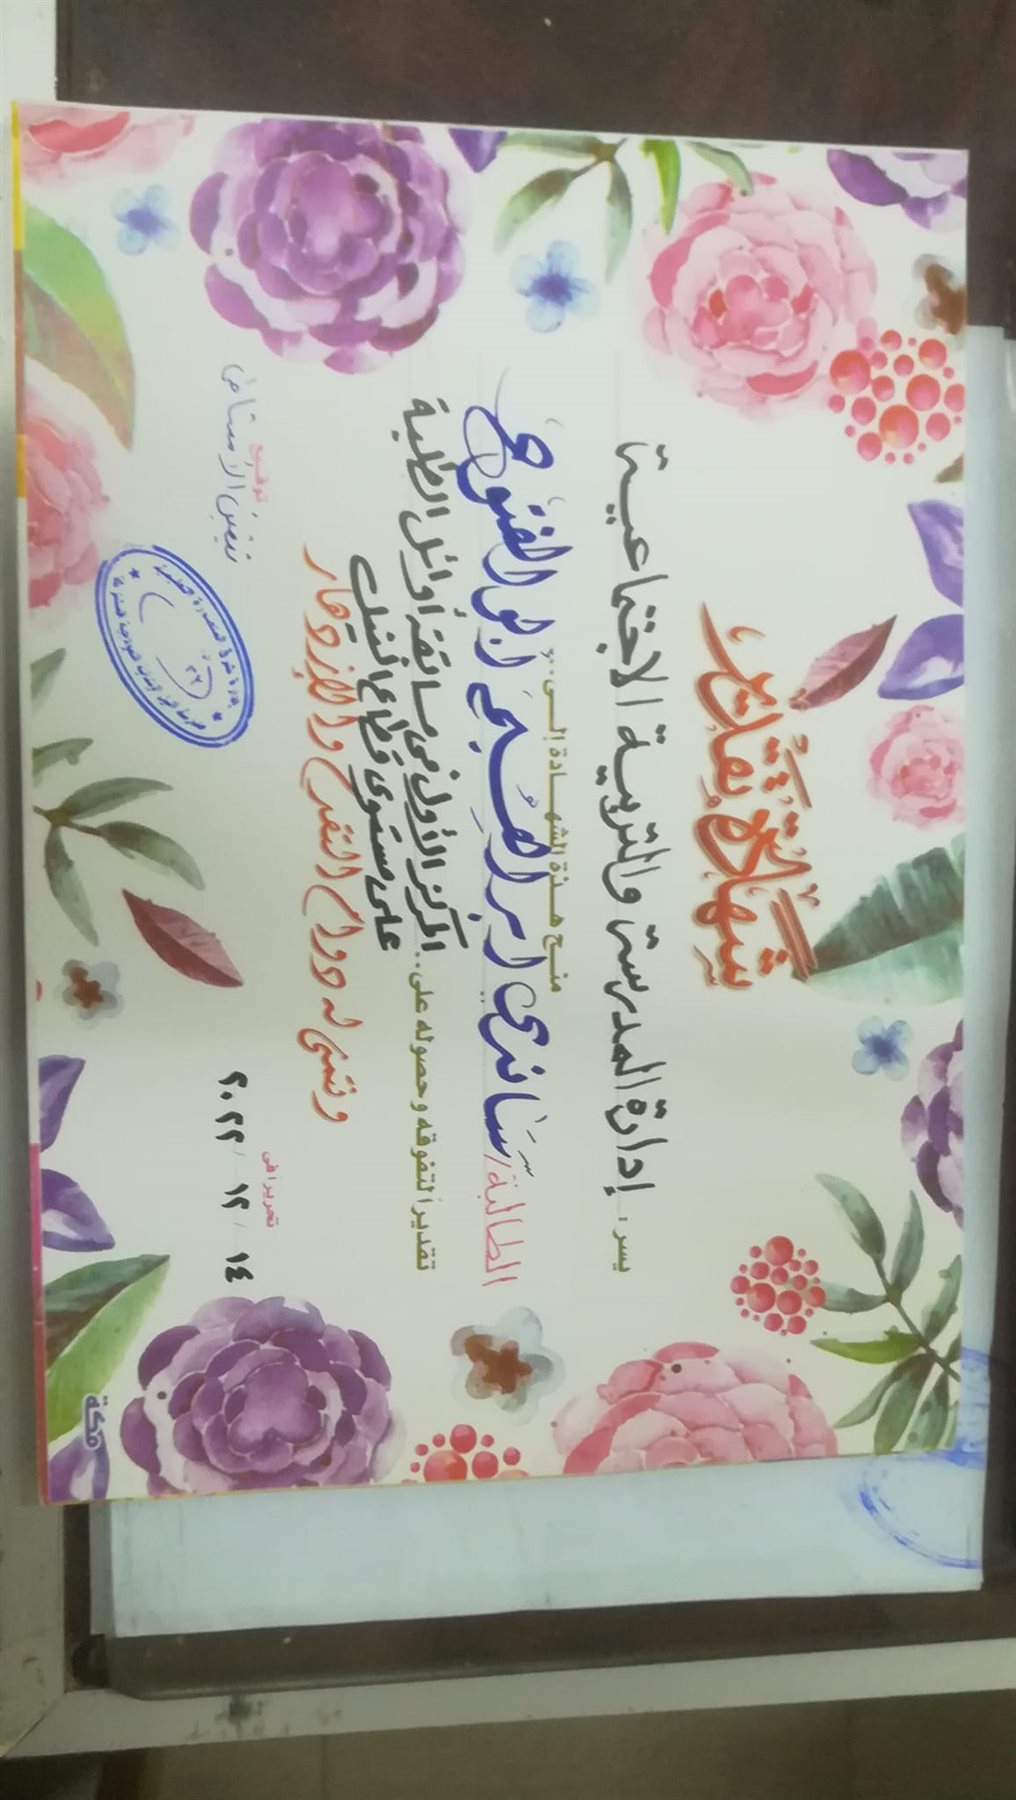 شهادة تقدير
يسر: إدارة المدرسة والتربية الاجتماعية
منح هذه الشهادة إلى..
الطالبة/ ساندي ابراهيم ابو الفتوح
تقديراً لتفوقه وحصوله على.. المركز الأول في مسابقة أوائل الطلبة
على مستوى قطاع
ونتمنى له دوام التقدم والازدهار
تحريراً في
١٤ / ١٢ / ٢٠٢٢
توقيع
مكة